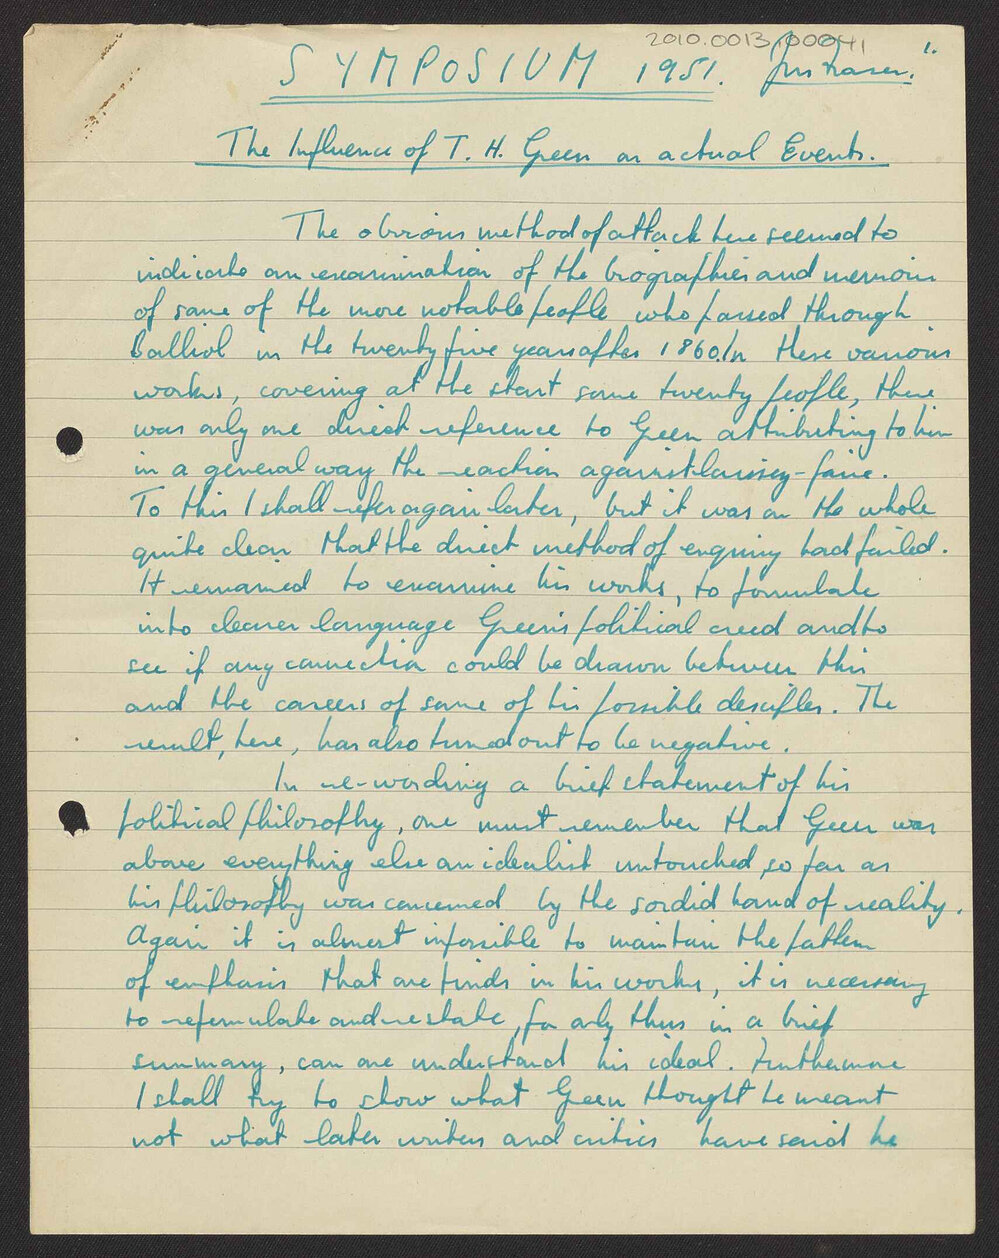 2010.0013.00041
1.
SYMPOSIUM 1951.
Jn Fraser.
The Influence of T. H. Green on actual Events.
The obvious method of attack here seemed to
indicate an examination of the biographies and memoirs
of some of the more notable people who passed through
Balliol in the twenty five years after 1860. In these various
works, covering at the start some twenty people, there
was only one direct reference to Green attributing to him
in a general way the reaction against laissey-faire.
To this I shall refer again later, but it was on the whole
quite clear that the direct method of enquiry had failed.
It remained to examine his works, to formulate
into clearer language Green's political creed and to
see if any connection could be drawn between this
and the careers of some of his possible desciples. The
result, here, has also turned out to be negative.
In re-wording a brief statement of his
political philosophy, one must remember that Green was
above everything else an idealist untouched, so far as
his philosophy was concerned by the sordid hand of reality.
Again it is almost impossible to maintain the pattern
of emphasis that one finds in his works, it is necessary
to reformulate and restate, for only thus in a brief
summary, can one understand his ideal. Furthermore
I shall try to show what Green thought he meant
not what later writers and critics have said he